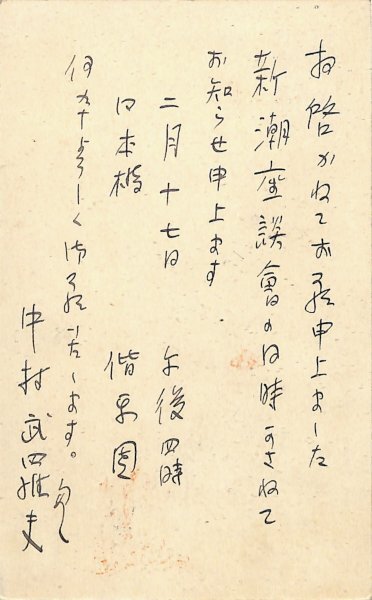 拝啓 かねてお願申上ました
新潮座談會の日時かさねて
お知らせ申上ます
二月十七日 午後四時
日本橋 偕楽園
何卒よろしく御願いします。
中村武羅夫